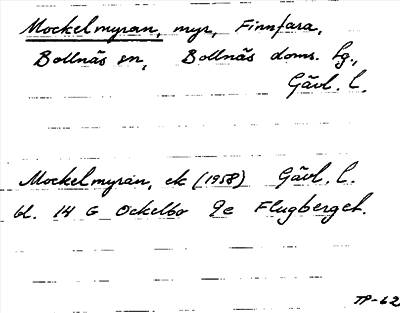 Mockelmyran, myr, Finnfara,
Bollnäs sn, Bollnäs doms. lg.,
Gävl. l.
Mockelmyran, ek (1958) Gävl. l.
bl. 14 G Ockelbo 9e Flugberget.
TP-62